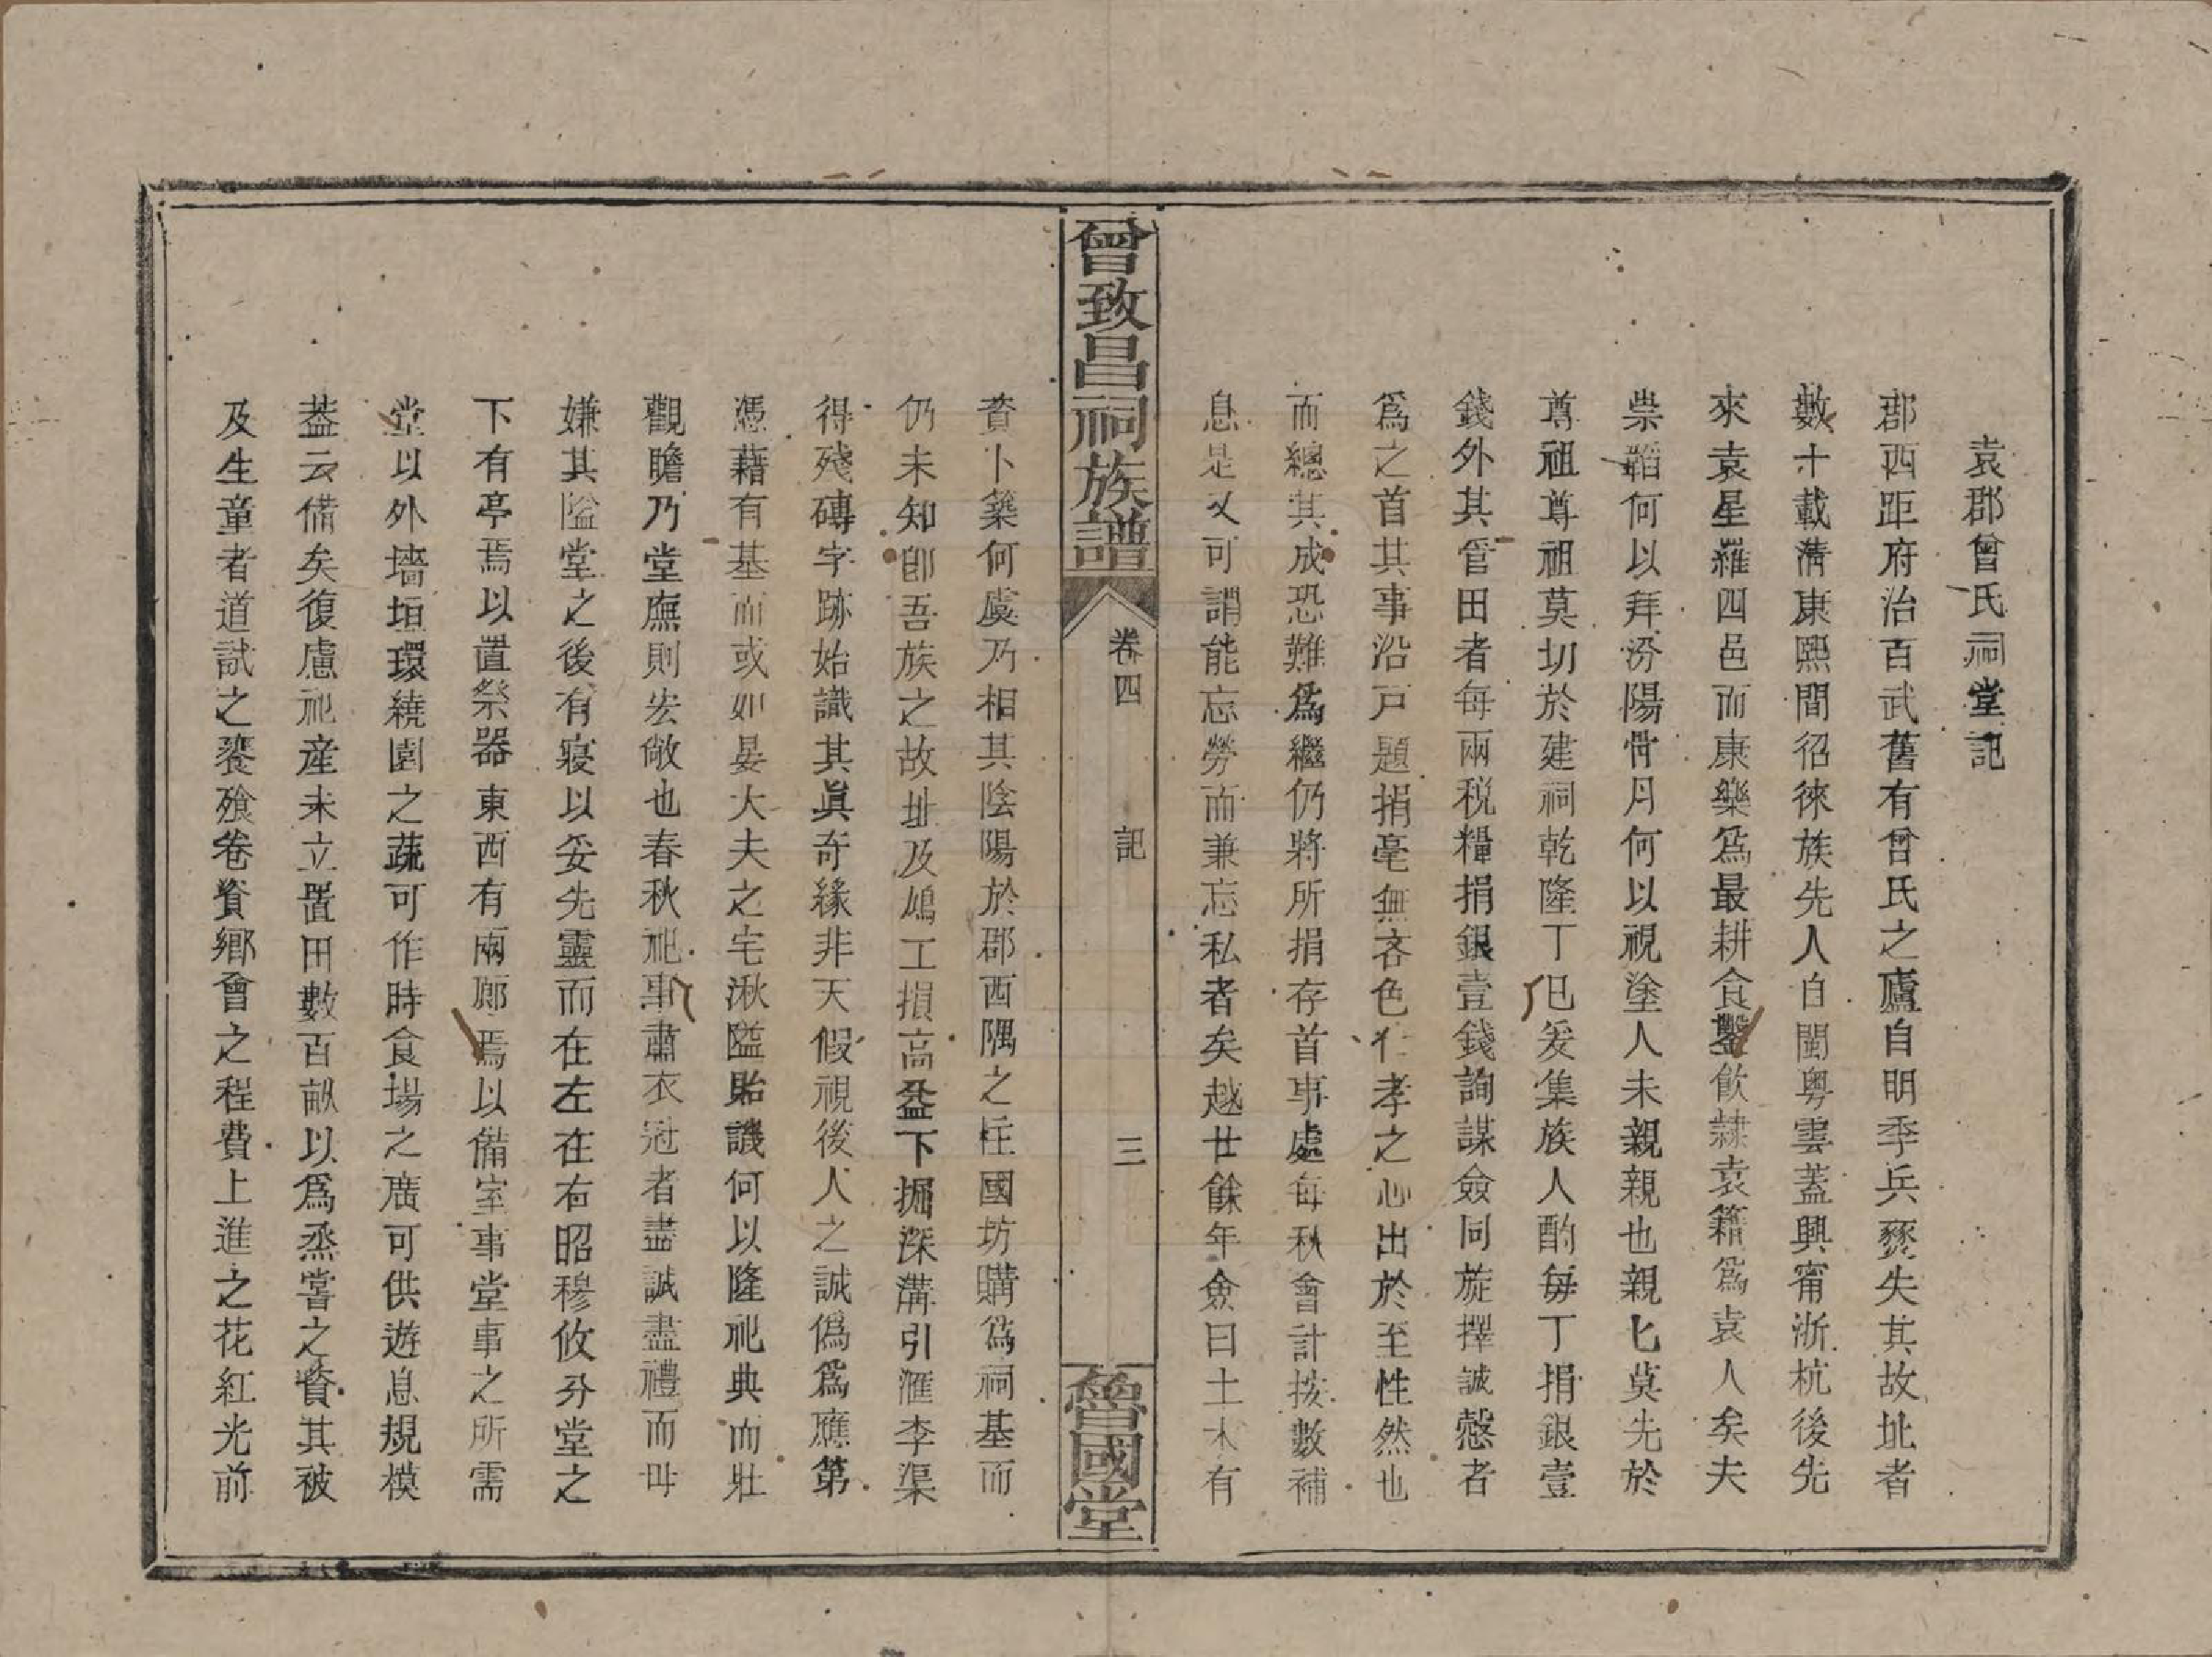 袁郡曾氏祠堂記
郡西距府治百武舊有曾氏之廬自明季兵燹失其故址者
數十載清康熙間招徠族先人自閩粵雲蓋興甯浙杭後先
來袁星羅四邑而康樂爲最耕食鑿飲隸袁籍爲袁人矣夫
祟韜何以拜汾陽骨月何以視塗人未親親也親匕莫先於
尊祖尊祖莫切於建祠乾隆丁巳爰集族人酌每丁捐銀壹
錢外其管田者每兩税糧捐銀壹錢詢謀僉同旋擇誠慤者
爲之首其事沿戸題捐毫無吝色仁孝之心出於至性然也
而總其成恐難爲繼仍將所捐存首事處每秋會計按數補
息是又可謂能忘勞而兼忘私者矣越廿餘年僉曰土木有
曾致昌祠族譜
卷四
記
三
魯國堂
資卜築何虞乃相其陰陽於郡西隅之拄國坊購爲祠基而
仍未知卽吾族之故址及鳩工損高益下掘深溝引滙李渠
得殘磚字跡始識其眞奇緣非天假視後人之誠僞爲應第
憑藉有基而或如晏大夫之宅湫隘貽譏何以隆祀典而壯
觀瞻乃堂廡則宏敞也春秋祀事肅衣冠者盡誠盡禮而毌
嫌其隘堂之後有寢以妥先靈而在左在右昭穆攸分堂之
下有亭焉以置祭器東西有兩廊焉以備室事堂事之所需
堂以外墻垣環繞園之蔬可作時食場之廣可供遊息規模
葢云備矣復慮祀産未立置田數百畝以爲烝嘗之資其被
及生童者道試之饔飱卷資鄉會之程費上進之花紅光前